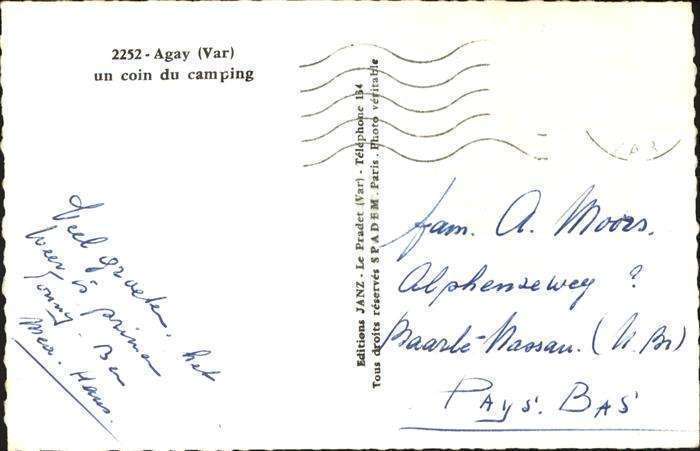 2252 - Agay (Var)
un coin du camping
Veel groeten, het
weer is prima
Tonny. Ben
Mea. Hans.
Editions JANZ - Le Pradet (Var) - Téléphone 154
Tous droits réservés SPADEM. Paris. Photo véritable
fam. A. Moors.
Alphenseweg ?
Baarle-Nassau. (N. Br)
PAYS. BAS